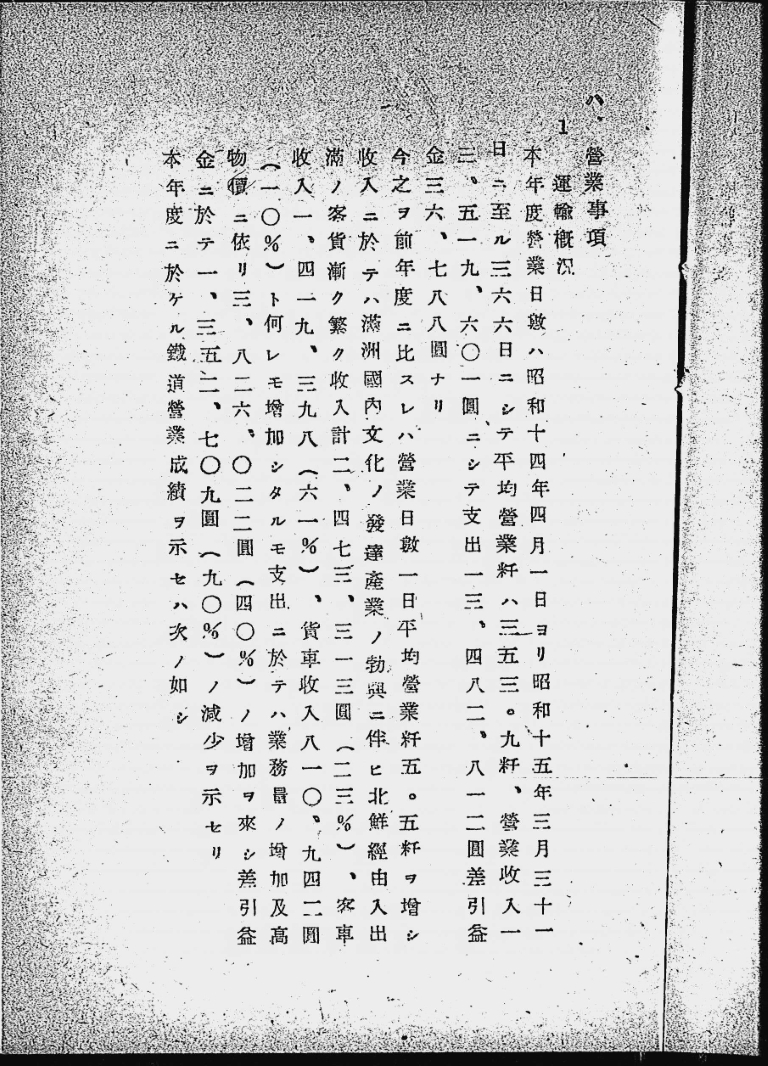 ハ、營業事項
1 運輸槪況
本年度營業日數ハ昭和十四年四月一日ヨリ昭和十五年三月三十一
日ニ至ル三六六日ニシテ平均營業粁ハ三五三。九粁、營業收入一
三、五一九、六〇一圓ニシテ支出一三、四八二、八一二圓差引益
金三六、七八八圓ナリ
今之ヲ前年度ニ比スレハ營業日數一日平均營業粁五。五粁ヲ增シ
收入ニ於テハ滿洲國內文化ノ發達產業ノ勃興ニ伴ヒ北鮮經由入出
滿ノ客貨漸ク繁ク收入計二、四七三、三一三圓(二三%)、客車
收入一、四一九、三九八(六一%)、貨車收入八一〇、九四二圓
(一〇%)ト何レモ增加シタルモ支出ニ於テハ業務量ノ增加及高
物價ニ依リ三、八二六、〇二二圓(四〇%)ノ增加ヲ來シ差引益
金ニ於テ一、三五二、七〇九圓(九〇%)ノ減少ヲ示セリ
本年度ニ於ケル鐵道營業成績ヲ示セハ次ノ如シ